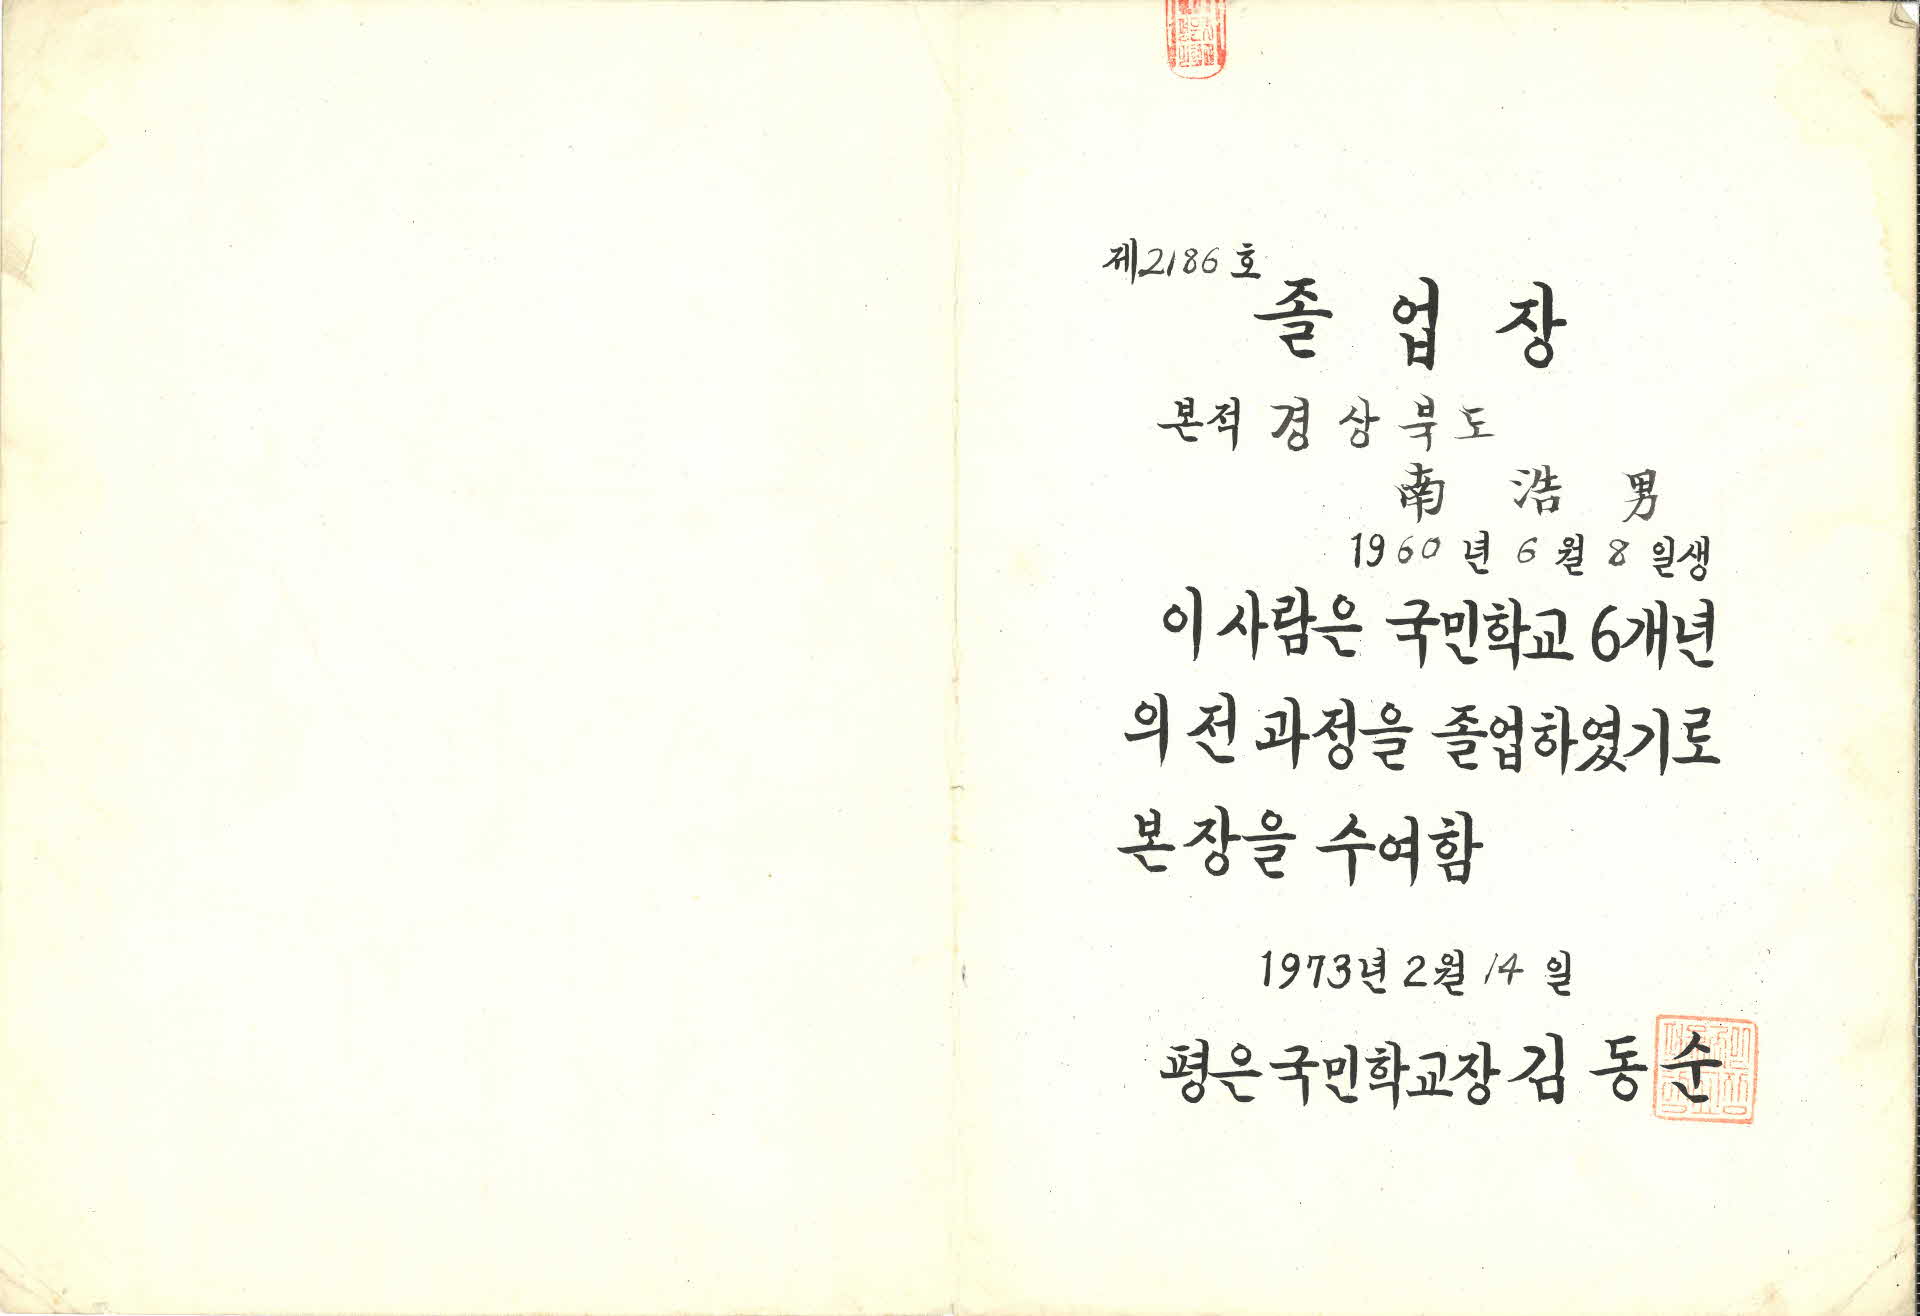 제2186호
졸업장
본적 경상북도
南浩男
1960년 6월 8일생
이 사람은 국민학교 6개년
의 전 과정을 졸업하였기로
본장을 수여함
1973년 2월 14일
평은국민학교장 김동순